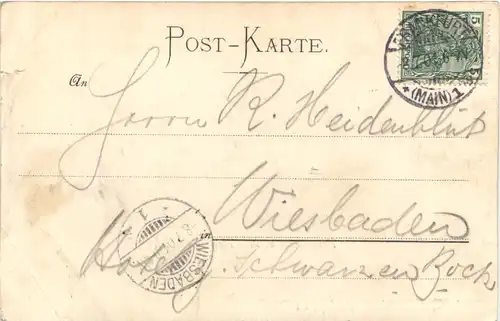 POST-KARTE.
An
Herrn R. Heidenblut
Wiesbaden
Hotel z. Schwarzen Bock
5
FRANKFURT
*(MAIN) 1
WIESBADEN
1